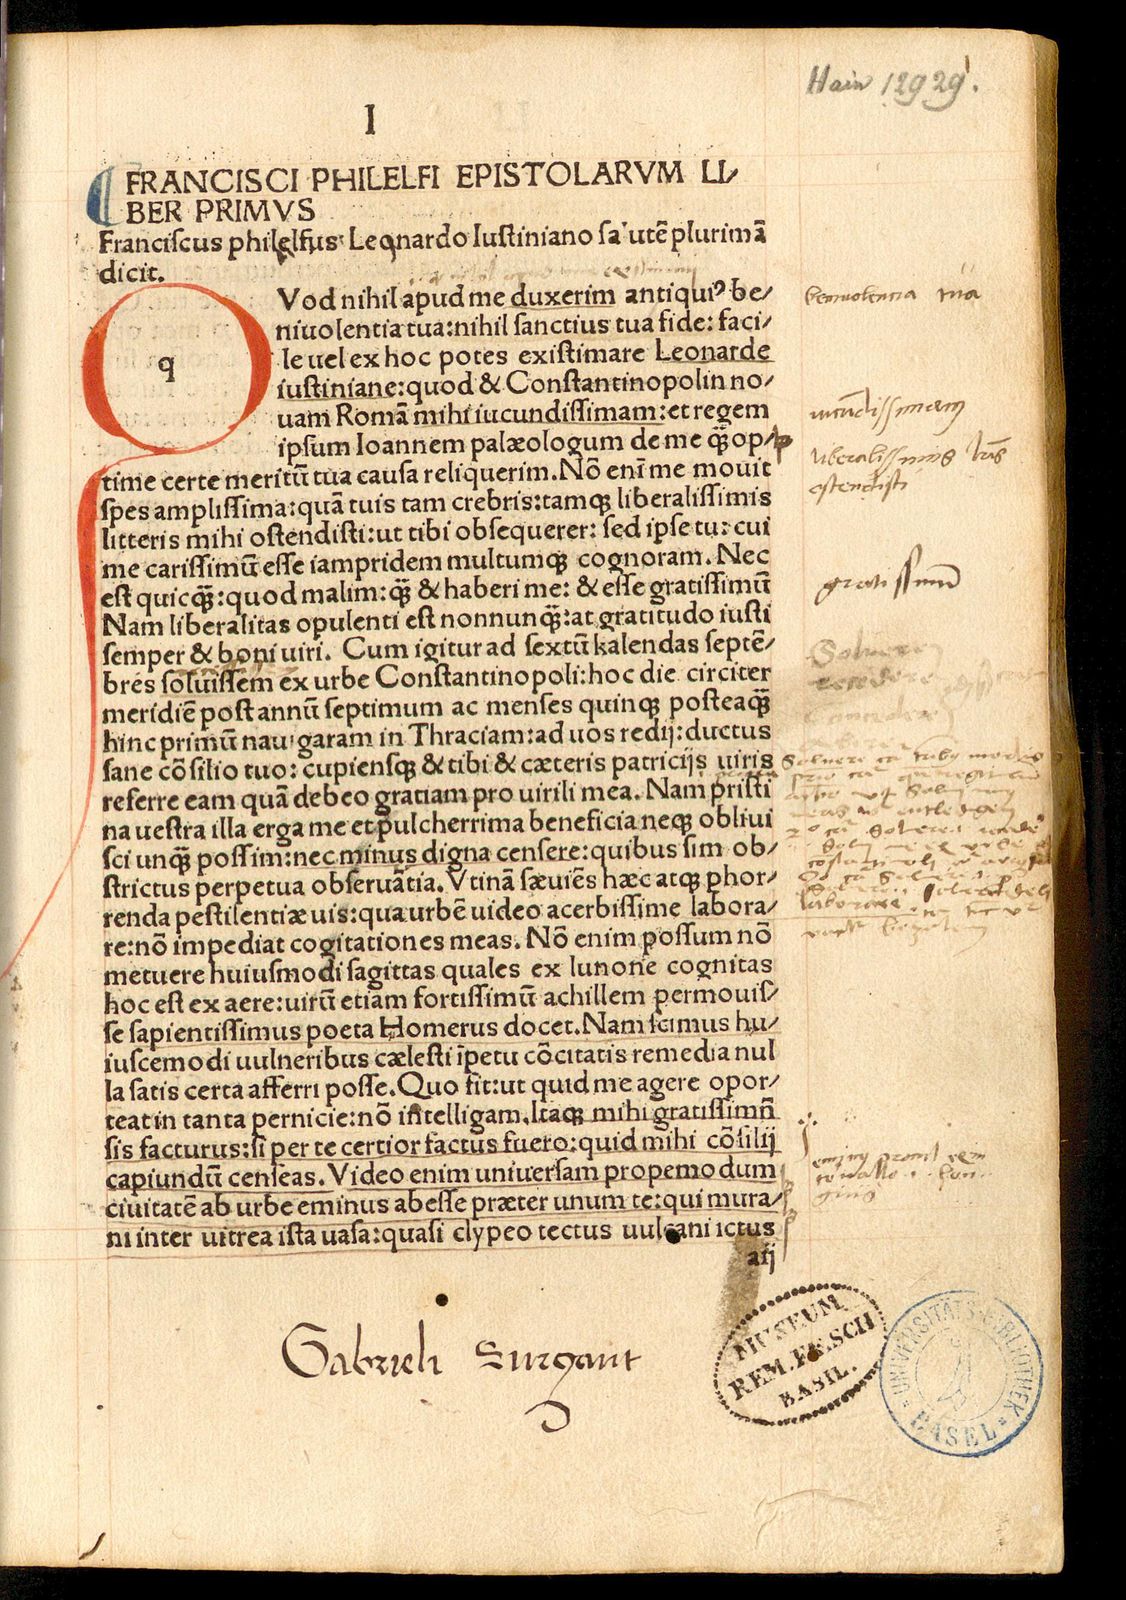 Hain 12929.
I
FRANCISCI PHILELFI EPISTOLARVM LI⸗
BER PRIMVS
Franciscus philelfus Leonardo Iustiniano sa utē plurimā
dicit.
q
Vod nihil apud me duxerim antiquiꝰ be⸗
niuolentia tua: nihil sanctius tua fide: faci⸗
le uel ex hoc potes existimare Leonarde
iustiniane: quod & Constantinopolin no⸗
uam Romā mihi iucundissimam: et regem
ipsum Ioannem palæologum de me q̃ op⸗
time certe meritū tua causa reliquerim. Nō enī me mouit
spes amplissima: quā tuis tam crebris: tamqꝫ liberalissimis
litteris mihi ostendisti: ut tibi obsequerer: sed ipse tu: cui
me carissimū esse iampridem multumqꝫ cognoram. Nec
est quicq̃: quod malim: q̃ & haberi me: & esse gratissimū
Nam liberalitas opulenti est nonnunq̃: at gratitudo iusti
semper & boni uiri. Cum igitur ad sextū kalendas septē⸗
bres soluissem ex urbe Constantinopoli: hoc die circiter
meridiē post annū septimum ac menses quinqꝫ posteaq̃
hinc primū nauigaram in Thraciam: ad uos redij: ductus
sane cōsilio tuo: cupiensqꝫ & tibi & cæteris patricijs uiris
referre eam quā debeo gratiam pro uirili mea. Nam pristi
na uestra illa erga me et pulcherrima beneficia neqꝫ obliui
sci unq̃ possim: nec minus digna censere: quibus sim ob⸗
strictus perpetua obseruātia. Vtinā sæuiēs hæc atqꝫ phor⸗
renda pestilentiæ uis: qua urbē uideo acerbissime labora⸗
re: nō impediat cogitationes meas. Nō enim possum nō
metuere huiusmodi sagittas quales ex Iunone cognitas
hoc est ex aere: uirū etiam fortissimū achillem permouis⸗
se sapientissimus poeta Homerus docet. Nam scimus hu⸗
iuscemodi uulneribus cælesti īpetu cōcitatis remedia nul
la satis certa afferri posse. Quo fit: ut quid me agere opor⸗
teat in tanta pernicie: nō intelligam. Itaqꝫ mihi gratissimū
sis facturus: si per te certior factus fuero: quid mihi cōsilij
capiundū censeas. Video enim uniuersam propemodum
ciuitatē ab urbe eminus abesse præter unum te: qui mura⸗
ni inter uitrea ista uasa: quasi clypeo tectus uulcani ictus
aij
beniuolencia tua
iucūdissimam
liberalissimis
ostendisti
gratissimū
Gabrieli Surgant
MUSEUM
REM. FÆSCH
BASIL.
UNIVERSITÄTS-BIBLIOTHEK
BASEL